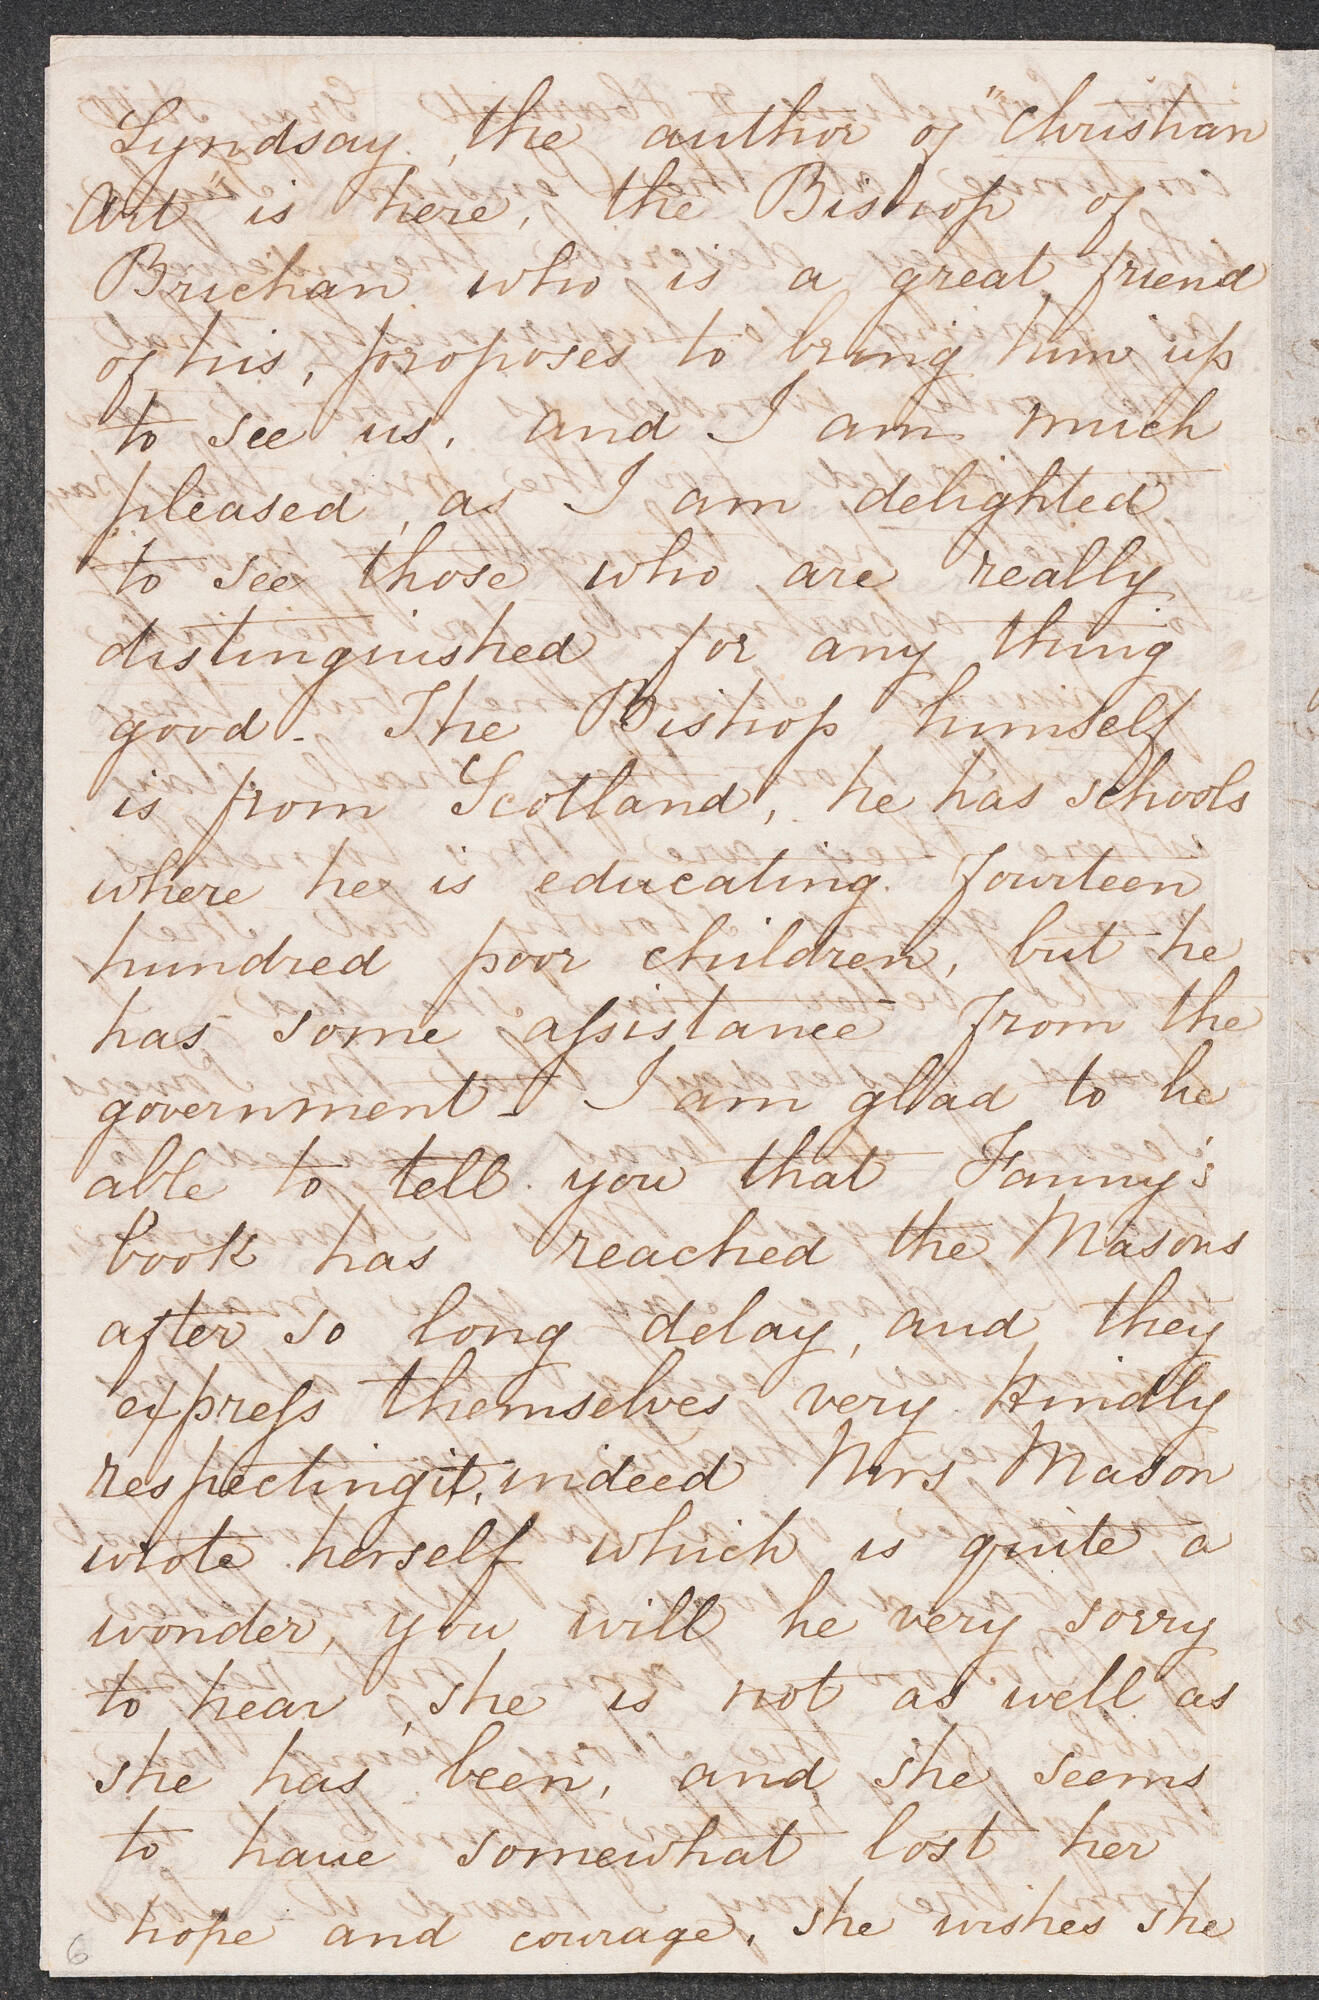 Lyndsay, the author of "Christian
Art" is here, the Bishop of
Brichan who is a great friend
of his, proposes to bring him up
to see us, and I am much
pleased, as I am delighted
to see those who are really
distinguished for any thing
good - The Bishop himself
is from Scotland, he has schools
where he is educating fourteen
hundred poor children, but he
has some assistance from the
government - I am glad to be
able to tell you that Fanny's
book has reached the Masons
after so long delay, and they
express themselves very kindly
respecting it, indeed Mrs Mason
wrote herself which is quite a
wonder, you will be very sorry
to hear, she is not as well as
she has been, and she seems
to have somewhat lost her
hope and courage, she wishes she
6